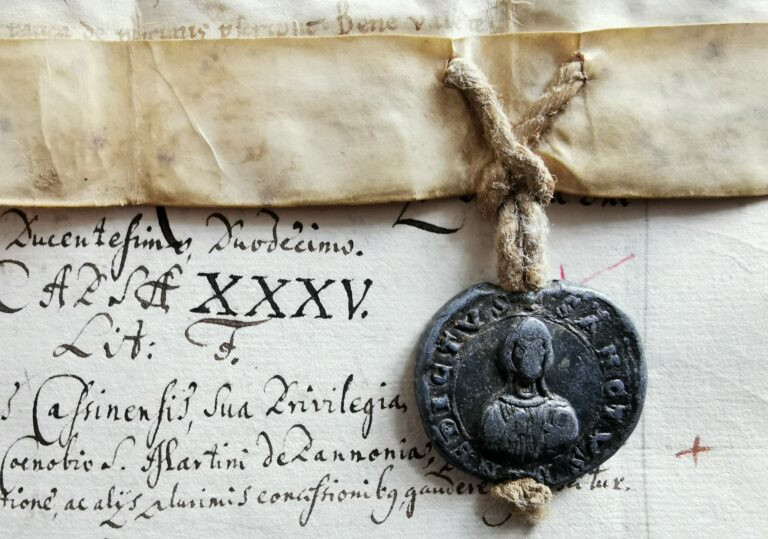 plurimis Bene Valete
Ducentesimo, Duodecimo.
CAPSÆ XXXV.
Lit: F.
s Cassinensis, sua Privilegia,
Coenobio S. Martini de Pannonia,
tione, ac alijs plurimis concessionibq, gaudere
SANCTUS BENEDICTVS